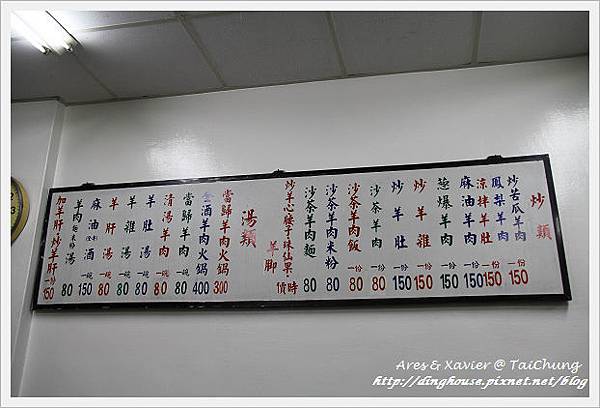 炒類
炒苦瓜羊肉 一份 150
鳳梨羊肉 一份 150
涼拌羊肚 一份 150
麻油羊肉 150
蔥爆羊肉 一份 150
炒羊雜 一份 150
炒羊肚 一份 150
沙茶羊肉 一份 80
沙茶羊肉飯 一份 80
沙茶羊肉米粉 80
沙茶羊肉麵 80
時價
羊腳
湯類
當歸羊肉火鍋 300
全酒羊肉火鍋 400
當歸羊肉 一碗 80
清湯羊肉 一碗 80
羊肚湯 一碗 80
羊雜湯 一碗 80
羊肝湯 一碗 80
麻油 酒 150
羊肉 湯 80
加羊肝 炒羊肝 一份 150
Ares & Xavier @ TaiChung
http://dinghouse.pixnet.net/blog